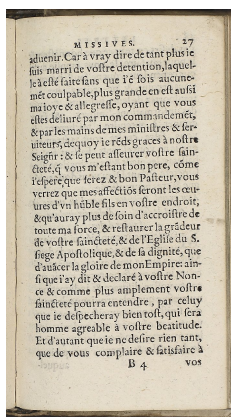 MISSIVES. 27
aduenir. Car à vray dire de tant plus ie
suis marri de vostre detention, laquel-
le à esté faite sans que i'ē sois aucune-
mēt coulpable, plus grande en est aussi
ma ioye & allegresse, oyant que vous
estes deliuré par mon commandemēt,
& par les mains de mes ministres & ser-
uiteurs, dequoy ie rēds graces à nostre
Seigñr: & se peut asseurer vostre sain-
cteté, q̄ vous m'estant bon pere, cōme
i'espere que serez & bon Pasteur, vous
verrez que mes affectiōs seront les œu-
ures d'vn hūble fils en vostre endroit,
& qu'auray plus de soin d'accroistre de
toute ma force, & restaurer la grādeur
de vostre saincteté, & de l'Eglise du S.
siege Apostolique, & de sa dignité, que
d'auācer la gloire de mon Empire: ain-
si que i'ay dit & declaré à vostre Non-
ce & comme plus amplement vostre
saincteté pourra entendre, par celuy
que ie despecheray bien tost, qui sera
homme agreable à vostre beatitude.
Et d'autant que ie ne desire rien tant,
que de vous complaire & satisfaire à
B 4 vos